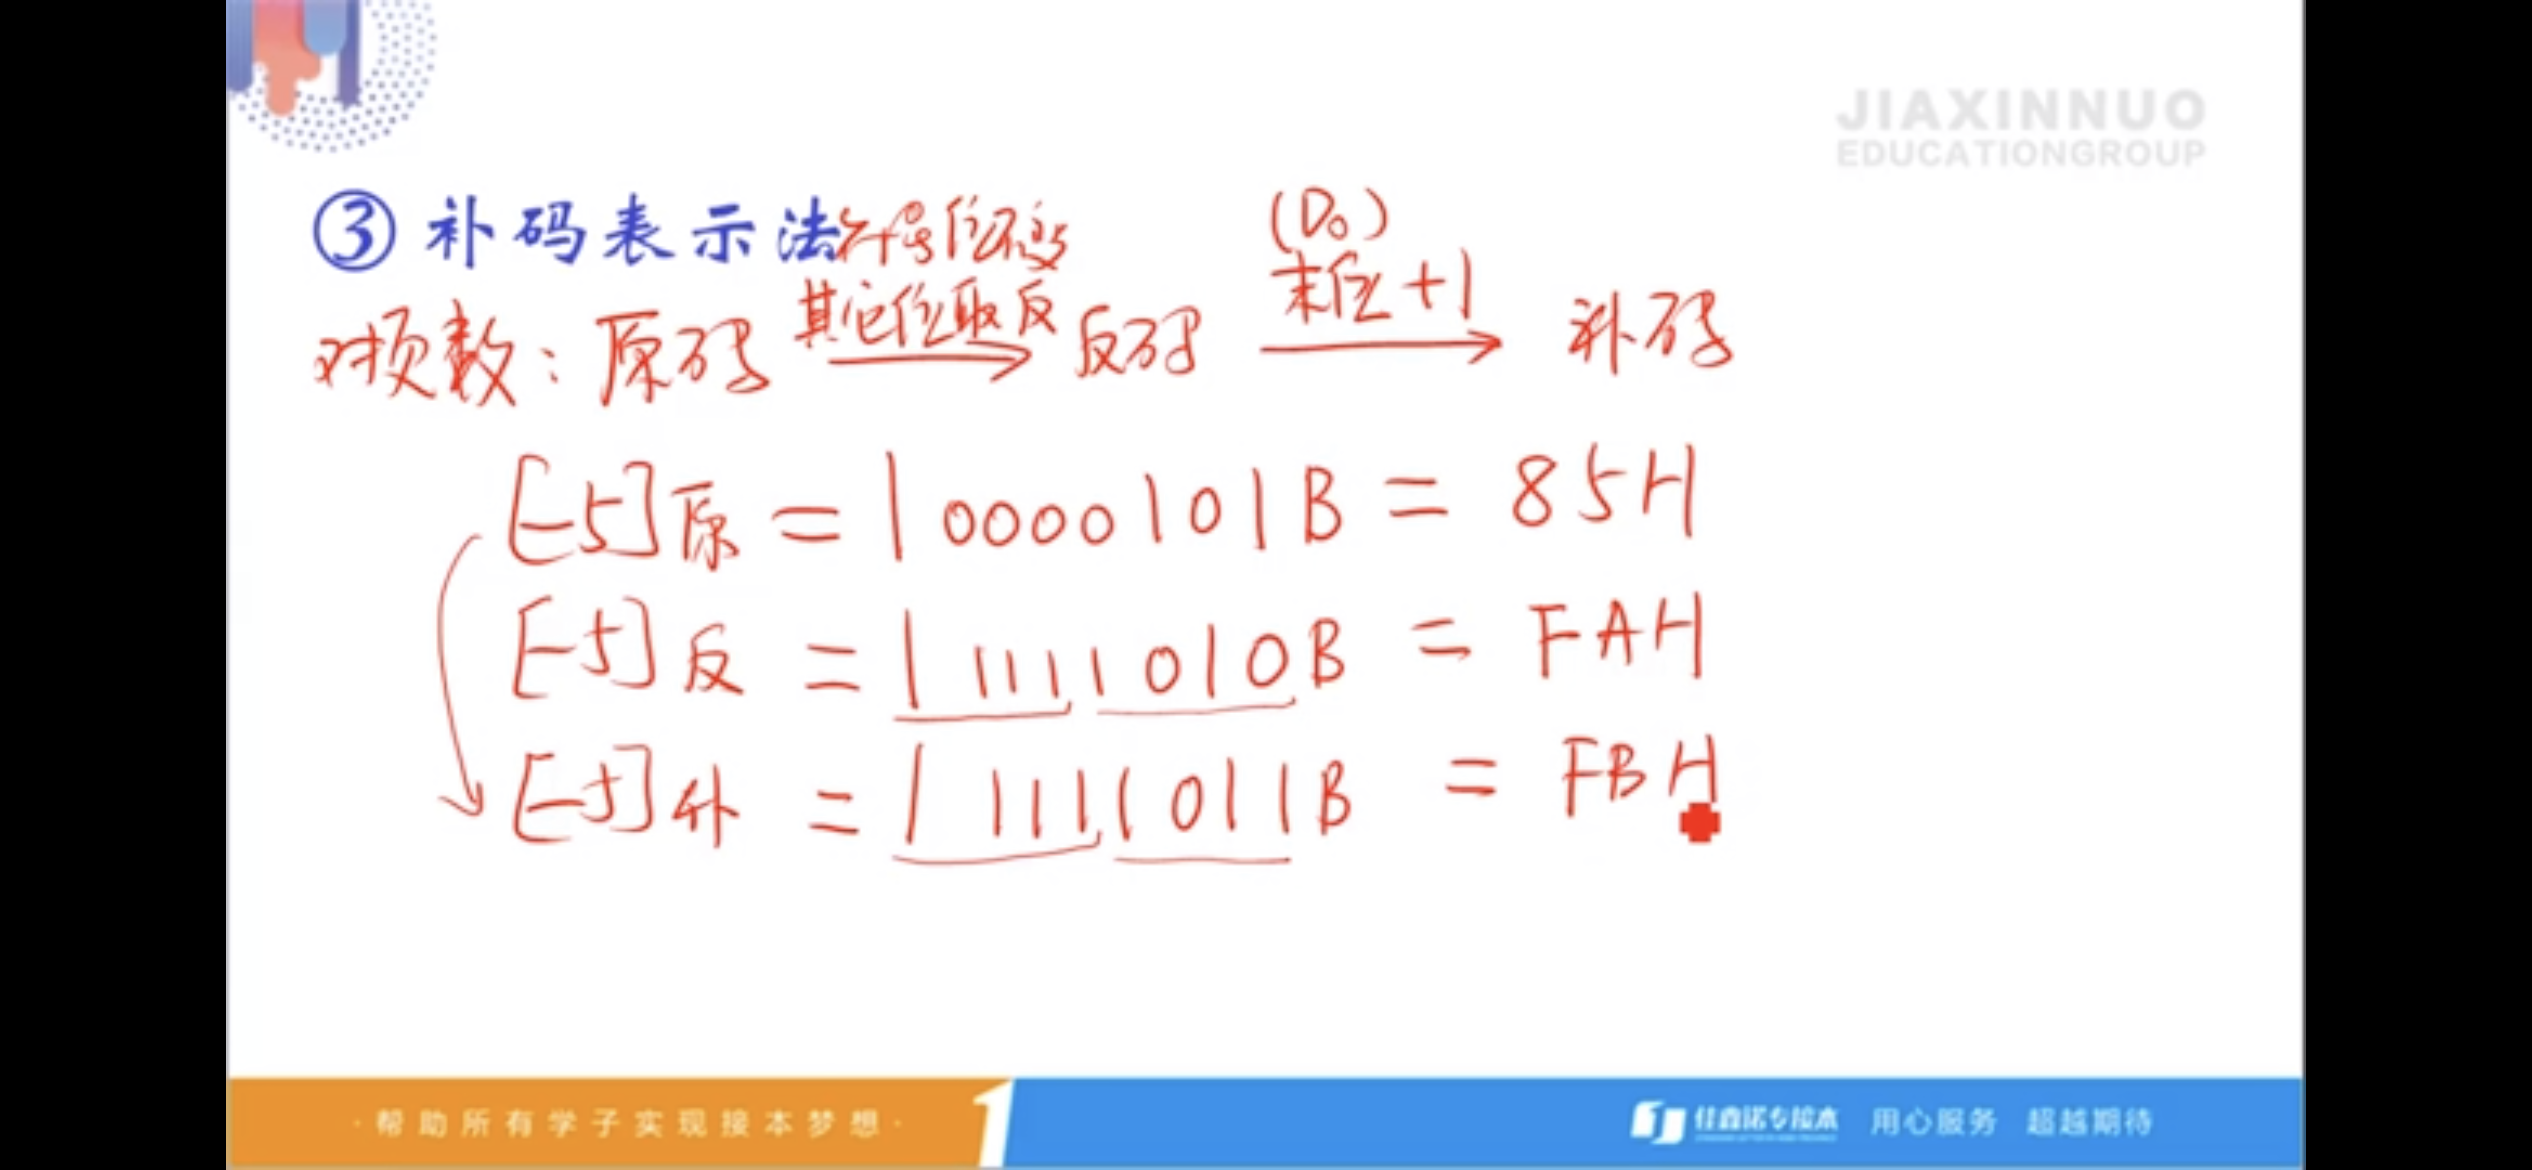 JIAXINNUO
EDUCATIONGROUP
③ 补码表示法
符号位不变
(D₀)
对负数：原码 其它位取反 反码 末位+1 补码
[-5]原 = 10000101B = 85H
[-5]反 = 11111010B = FAH
[-5]补 = 11111011B = FBH
·帮助所有学子实现接本梦想·
1
佳鑫诺专接本 用心服务 超越期待